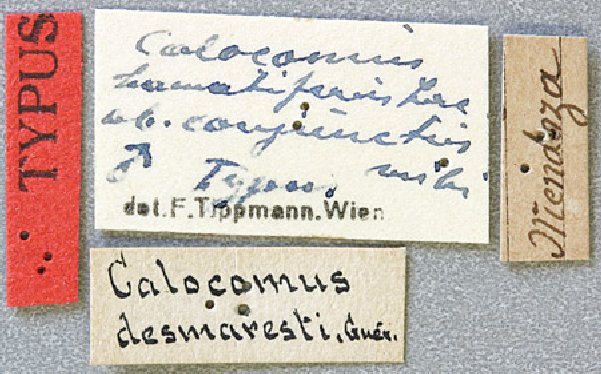 TYPUS
Calocomus
hamatiferus Lac
ab. conjunctus
♂ Typus. mihi
det. F. Tippmann. Wien
Mendoza
Calocomus
desmaresti, Guér.